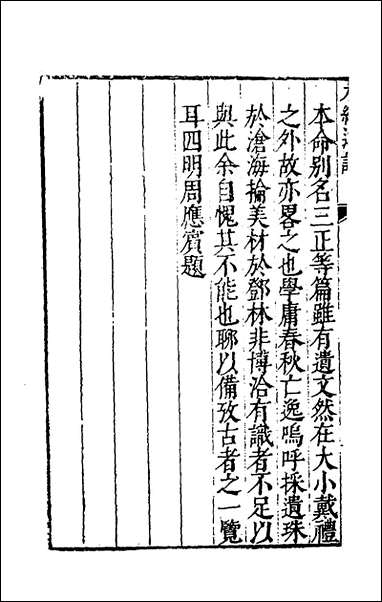 本命别名三正等篇雖有遺文然在大小戴禮
之外故亦畧之也學庸春秋亡逸嗚呼採遺珠
於滄海掄美材於鄧林非博洽有識者不足以
與此余自愧其不能也聊以備攷古者之一覽
耳四明周應賓題